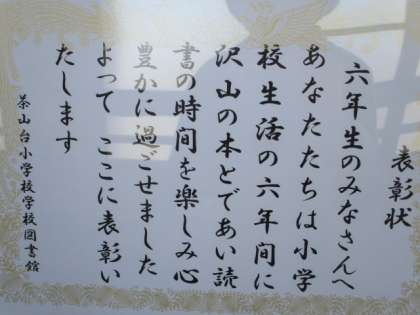 表彰状
六年生のみなさんへ
あなたたちは小学
校生活の六年間に
沢山の本とであい読
書の時間を楽しみ心
豊かに過ごせました
よって ここに表彰い
たします
茶山台小学校学校図書館